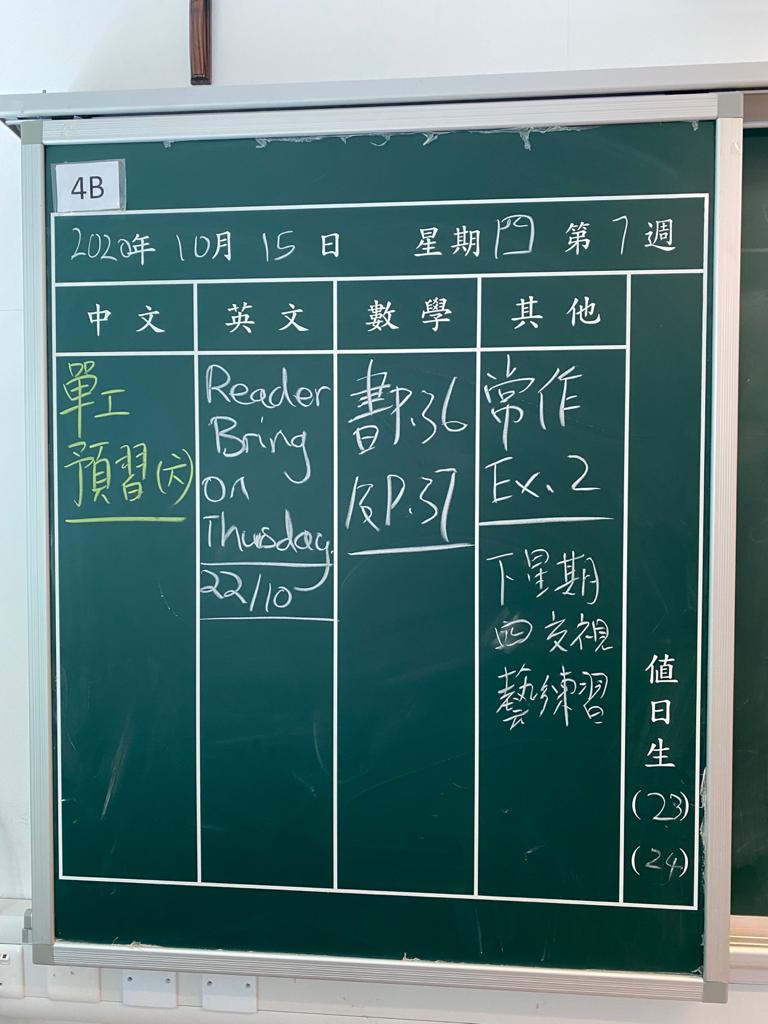 4B
2020年 10月 15日 星期四 第7週
中文
單工
預習(六)
英文
Reader
Bring
on
Thursday
22/10
數學
書P.36
及P.37
其他
常作
Ex. 2
下星期
四交視
藝練習
值日生
(23)
(24)